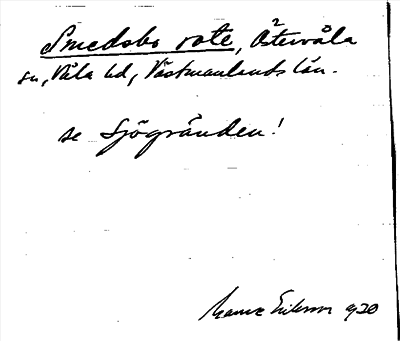 Smedsbo rote, Östervåla
sn, Våla hd, Västmanlands län.
se Sjögränden!
Eriksson 1920